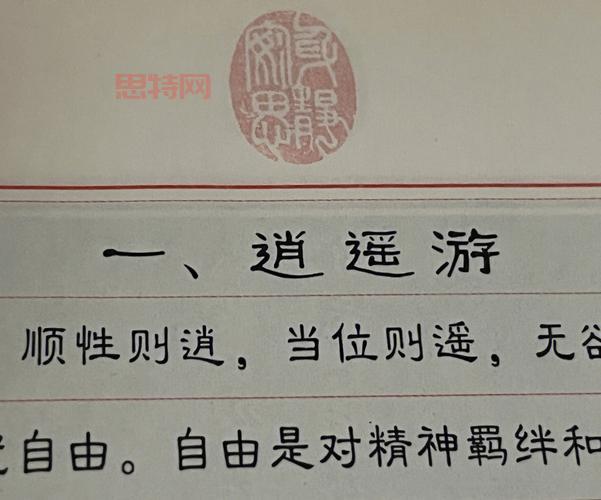 思特网
静
安思
一、逍遥游
顺性则逍，当位则遥，无
自由。自由是对精神羁绊和